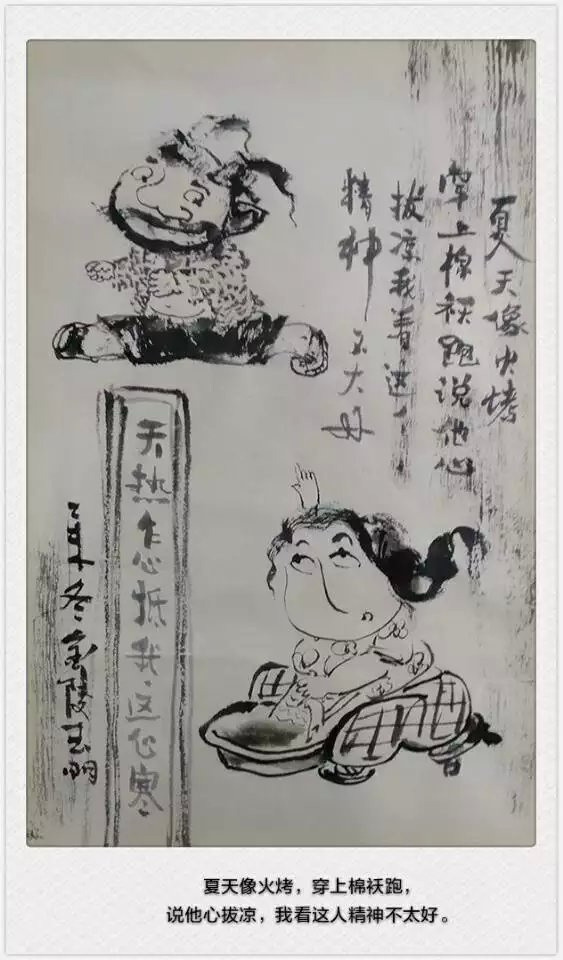 夏天像火烤
穿上棉袄跑说他心
拔凉我看这人
精神不太好
天热怎抵我这心寒
冬金陵
夏天像火烤，穿上棉袄跑，
说他心拔凉，我看这人精神不太好。